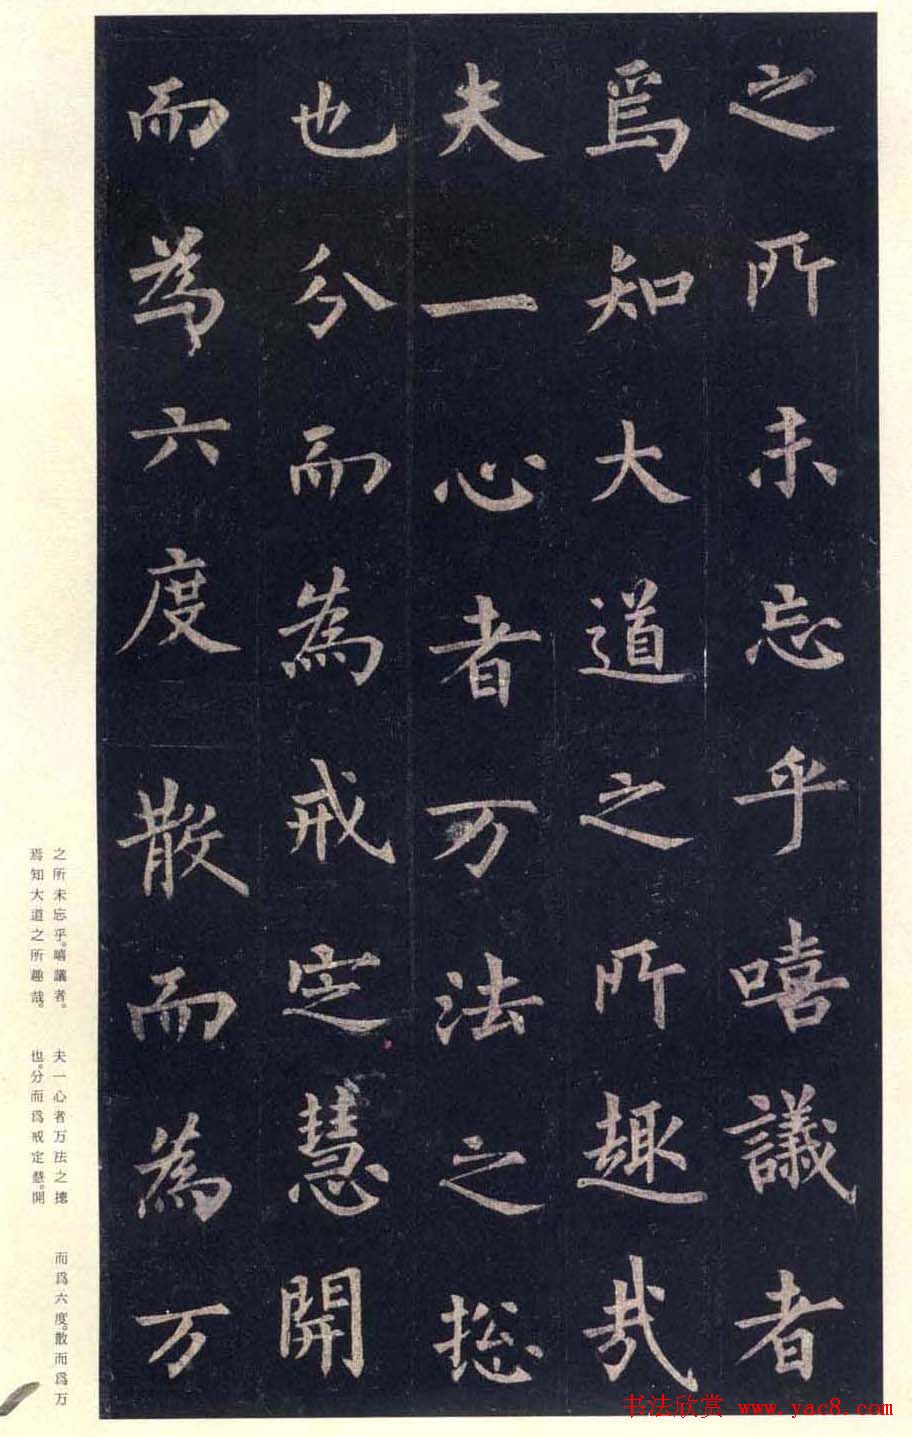 之所未忘乎嘻議者
焉知大道之所趣哉
夫一心者万法之捴
也分而為戒定慧開
而為六度散而為万
之所未忘乎。嘻議者。
焉知大道之所趣哉。
夫一心者万法之捴
也。分而爲戒定慧。開
而爲六度。散而爲万
书法欣赏 www.yac8.com